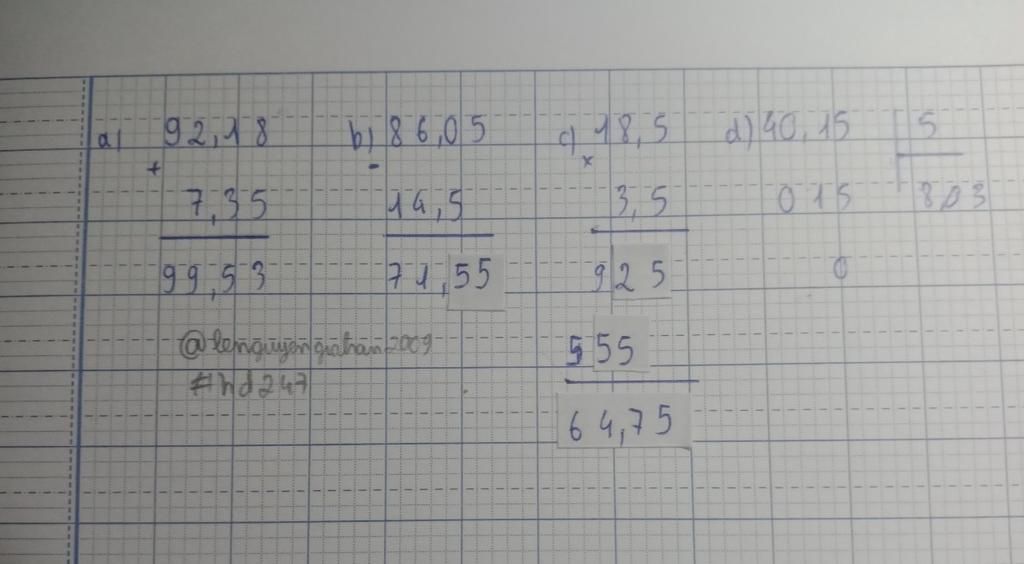 a) 92,18 b) 86,05 c) 18,5 d) 40,15 5
+ - ×
7,35 14,5 3,5 015 8,03
99,53 71,55 925 0
555
#hd247
64,75